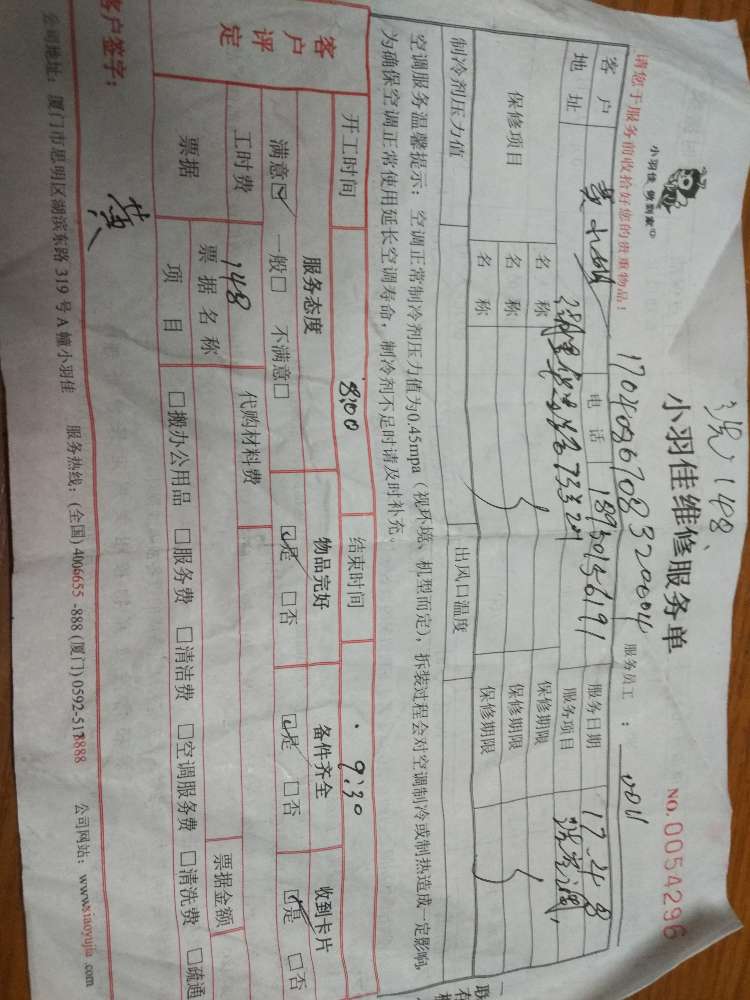 洗 148
小羽佳维修服务单
NO.0054296
小羽佳 做到家
1704026708320004
服务员工：
请您于服务前收拾好您的贵重物品！
客户 黄 电话 18950156191 服务日期 17-4-8
地址 服务项目
保修项目 名称 保修期限
名称 保修期限
名称 保修期限
制冷剂压力值 出风口温度
空调服务温馨提示：空调正常制冷剂压力值为0.45mpa（视环境、机型而定），拆装过程会对空调制冷或制热造成一定影响
为确保空调正常使用延长空调寿命，制冷剂不足时请及时补充。
开工时间 8:00 结束时间 9:30
客户评定 服务态度 物品完好 备件齐全 收到卡片
满意☑ 一般□ 不满意□ ☑是 □否 ☑是 □否 ☑是 □否
工时费 148 代购材料费
票据 票据名称 票据金额
项目 □搬办公用品 □服务费 □清洁费 □空调服务费 □清洗费 □疏通
客户签字： 黄
公司地址：厦门市思明区湖滨东路 319 号 A 幢小羽佳 服务热线：(全国) 4006655 -888 (厦门) 0592-5178888 公司网站：www.xiaoyujia.com